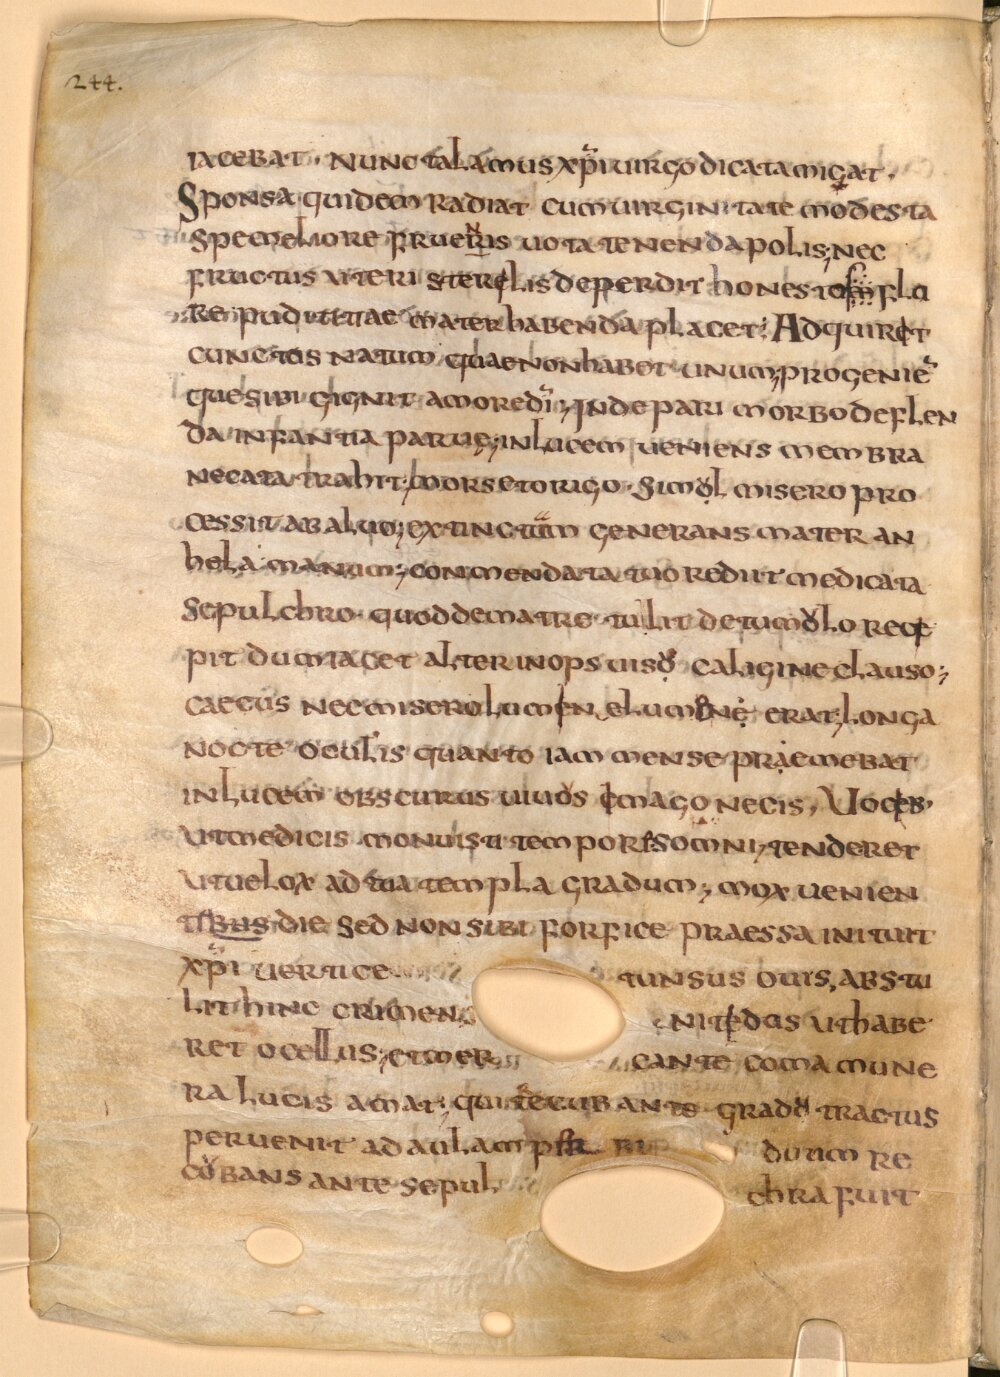 244.
iacebat. Nunc talamus xp̄i uirgo dicata migat.
Sponsa quidem radiat cum uirginitate modesta
spe meliore frueris uota tenenda polis; nec
fructus uteri sterelis deperdit honesto flo
re pudititiae mater habenda placet: Adquirit
cunctus natum quae non habet unum; progeniē
que sibi gignit amore dī; Inde pari morbo deflen
da infantia paruę; in lucem ueniens membra
necata trahit; mors et origo simul misero pro
cessit ab aluo; extinctum generans mater an
hela manum; conmendata tuo redit medicata
sepulchro quod de matre tulit de tumulo rece
pit dum iacet alter inops uisu caligine clauso;
caecus nec misero lumen elumine erat; longa
nocte oculis quanto iam mense praemebat
in lucem obscurus uiuus imago necis, Uocib.
ut medicis monuisti temporesomni; tenderet
ut uelox ad tua templa gradum; mox uenien
tibus die sed non sibi forfice praessa inituit
xp̄i uertice tunsus ouis, abstu
lit hinc crimen nitidus ut habe
ret ocellus; et mer cante coma mune
ra lucis amat; qui recubante gradu tractus
peruenit ad aulam duum re
cubans ante sepul chra fuit